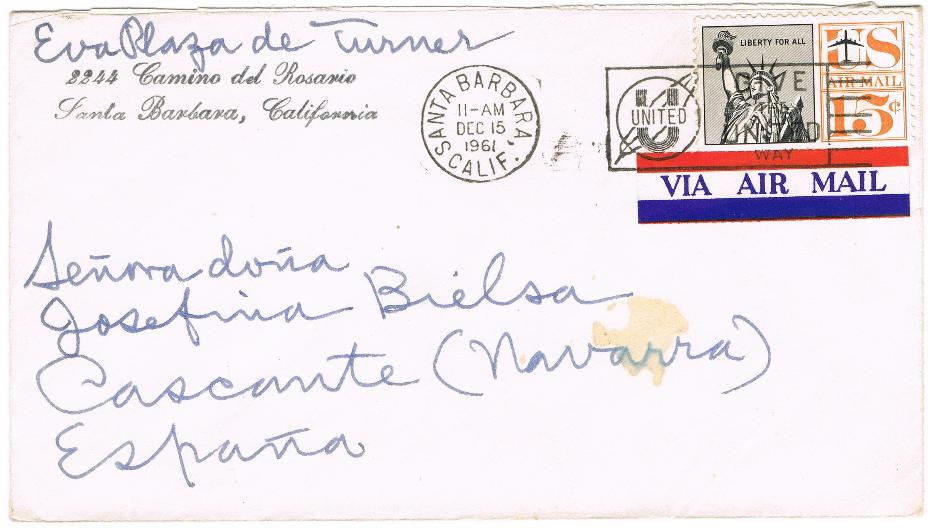 Eva Plaza de Turner
2244 Camino del Rosario
Santa Barbara, California
SANTA BARBARA
11-AM
DEC 15
1961
CALIF.
UNITED
WAY
LIBERTY FOR ALL
US
AIR MAIL
15¢
VIA AIR MAIL
Señora doña
Josefina Bielsa
Cascante (Navarra)
España